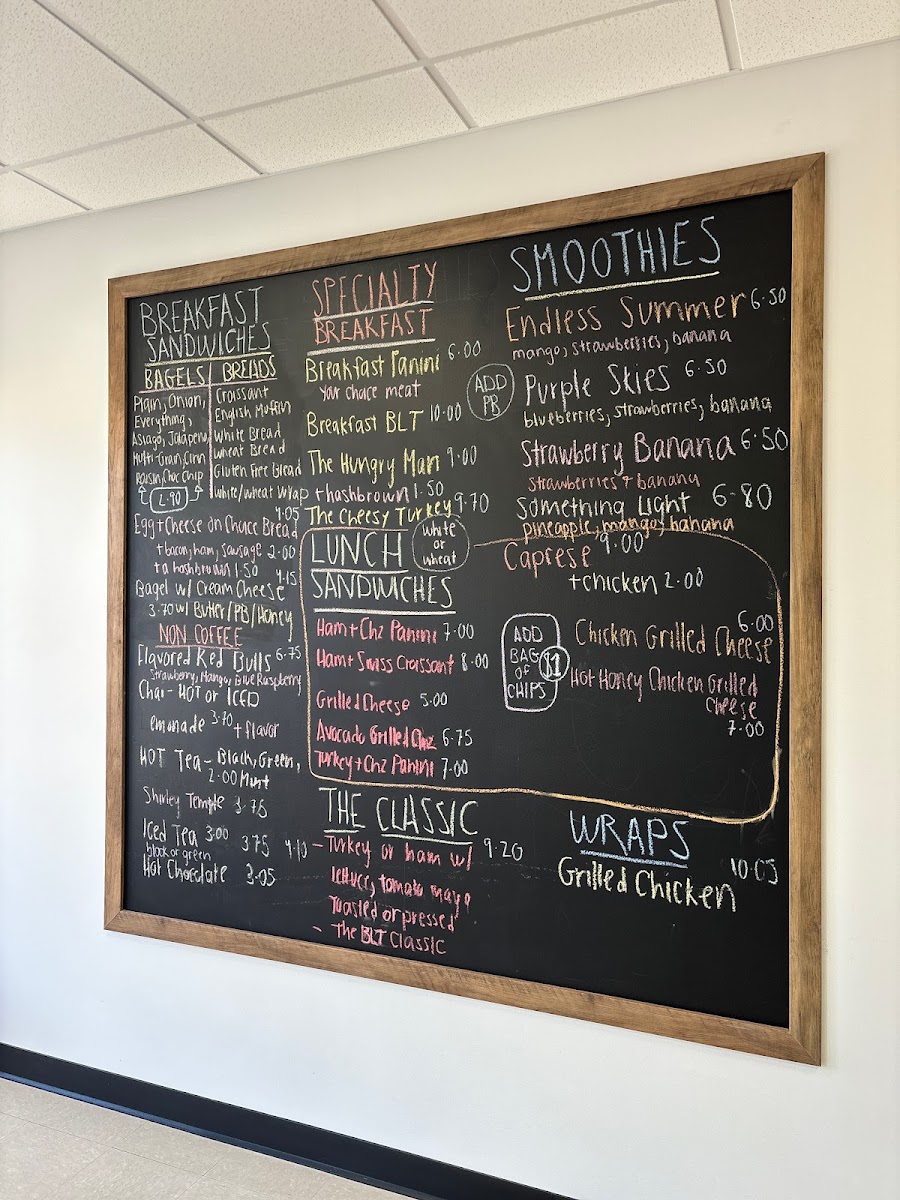 BREAKFAST
SANDWICHES
BAGELS BREADS
Plain, Onion,
Everything,
Asiago, Jalapeno,
Multi-Grain, Cinn
Raisin, Choc Chip
2.90
Croissant
English Muffin
White Bread
wheat Bread
Gluten Free Bread
white/wheat wrap
4.05
Egg + Cheese on Choice Bread
+ bacon, ham, sausage 2.00
+ a hashbrown 1.50
4.15
Bagel w/ Cream Cheese
3.70 w/ Butter/PB/Honey
NON COFFEE
Flavored Red Bulls 6.75
Strawberry, Mango, Blue Raspberry
Chai - HOT or ICED
lemonade 3.70 + flavor
HOT Tea - Black, Green,
2.00 Mint
Shirley Temple 3.75
Iced Tea 3.00 3.75 4.10
black or green
Hot Chocolate 3.05
SPECIALTY
BREAKFAST
Breakfast Panini 6.00
Your choice meat
Breakfast BLT 10.00
The Hungry Man 9.00
+ hashbrown 1.50
The Cheesy Turkey 9.70
LUNCH
SANDWICHES
white
or
wheat
Ham + Chz Panini 7.00
Ham + Swiss Croissant 8.00
Grilled Cheese 5.00
Avocado Grilled Chz 6.75
Turkey + Chz Panini 7.00
Caprese 9.00
+ chicken 2.00
ADD
BAG
OF
CHIPS
$1
6.00
Chicken Grilled Cheese
Hot Honey Chicken Grilled
Cheese
7.00
THE CLASSIC
- Turkey or ham w/ 9.20
lettuce, tomato mayo
Toasted or pressed
- The BLT Classic
SMOOTHIES
Endless Summer 6.50
mango, strawberries, banana
ADD
PB
Purple Skies 6.50
blueberries, strawberries, banana
Strawberry Banana 6.50
strawberries + banana
Something Light 6.80
pineapple, mango, banana
WRAPS
Grilled Chicken 10.05